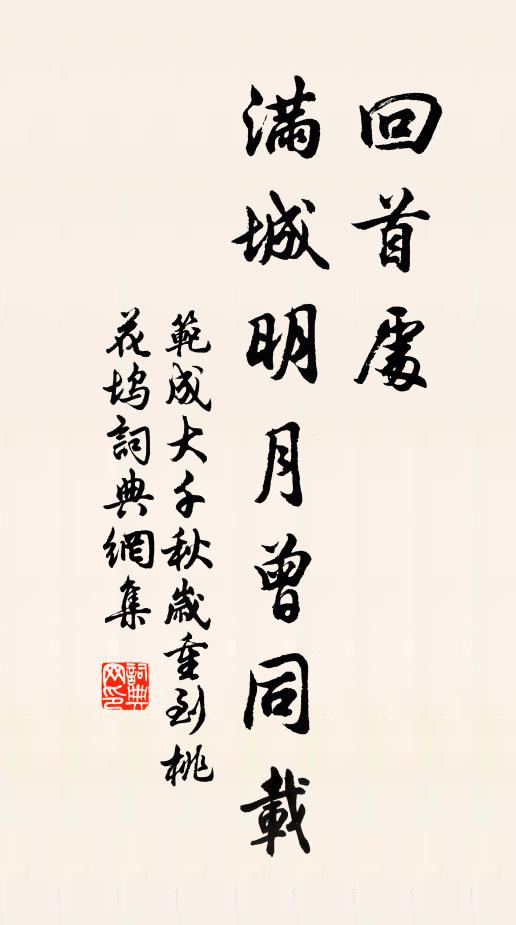 回首處
滿城明月曾同載
範成大千秋歲重到桃
花塢詞典網集
詞典
网印